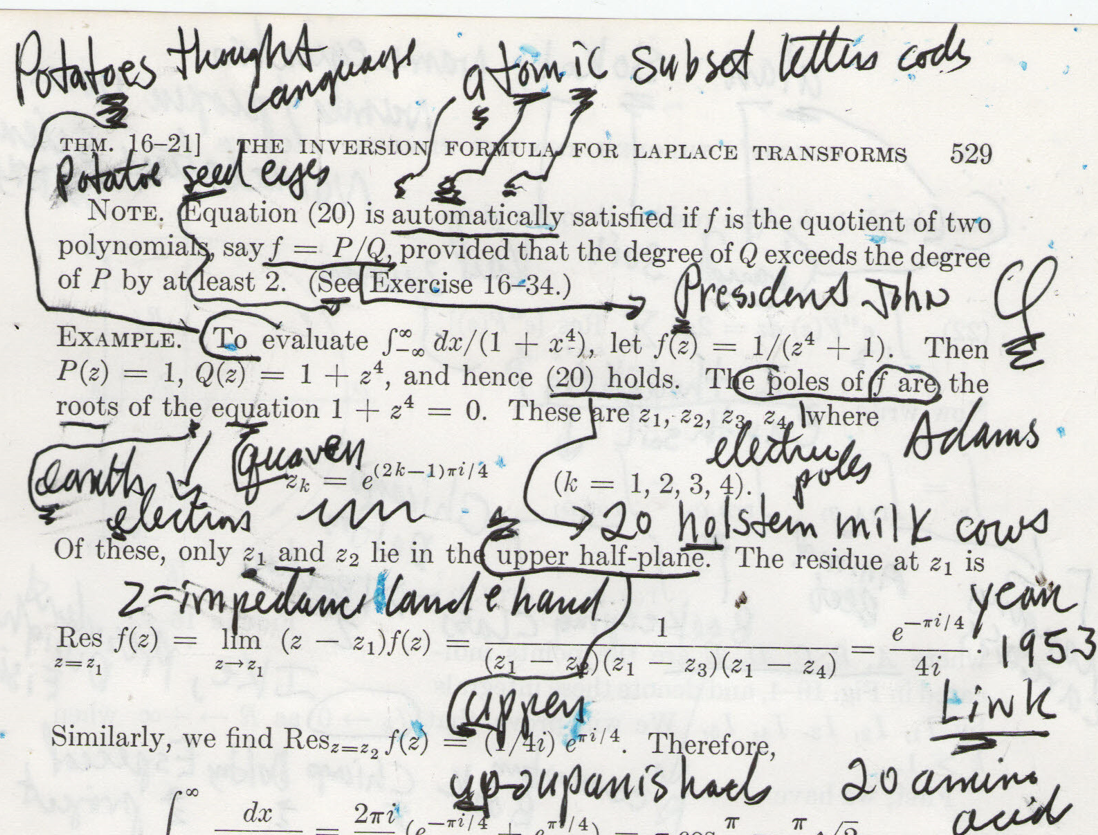 Potatoes thought language atomic subset letters code
THM. 16–21] THE INVERSION FORMULA FOR LAPLACE TRANSFORMS 529
Potatoe seed eyes
NOTE. Equation (20) is automatically satisfied if f is the quotient of two
polynomials, say f = P/Q, provided that the degree of Q exceeds the degree
of P by at least 2. (See Exercise 16–34.)
President John Q
EXAMPLE. To evaluate ∫_{-∞}^{∞} dx/(1 + x⁴), let f(z) = 1/(z⁴ + 1). Then
P(z) = 1, Q(z) = 1 + z⁴, and hence (20) holds. The poles of f are the
roots of the equation 1 + z⁴ = 0. These are z₁, z₂, z₃, z₄, where
Adams
electric poles
earth
z_k = e^{(2k−1)πi/4} (k = 1, 2, 3, 4).
electrons
20 holstein milk cows
Of these, only z₁ and z₂ lie in the upper half-plane. The residue at z₁ is
Z = impedance
hand
year
Res_{z=z₁} f(z) = lim_{z→z₁} (z − z₁)f(z) = 1/((z₁ − z₂)(z₁ − z₃)(z₁ − z₄)) = e^{−πi/4}/4i.
1953
upper
Link
Similarly, we find Res_{z=z₂} f(z) = (1/4i) e^{πi/4}. Therefore,
up → upanishads
20 amino acid
∫^{∞} dx = 2πi (e^{−πi/4} + e^{πi/4}) = π cos π π √2